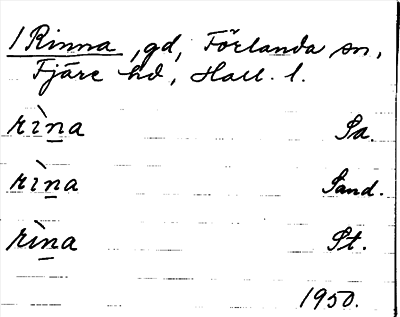 1 Rinna, gd, Förlanda sn,
Fjäre hd, Hall. l.
rìṉa Sa.
rìṉa Sand.
rìṉa St.
1950.